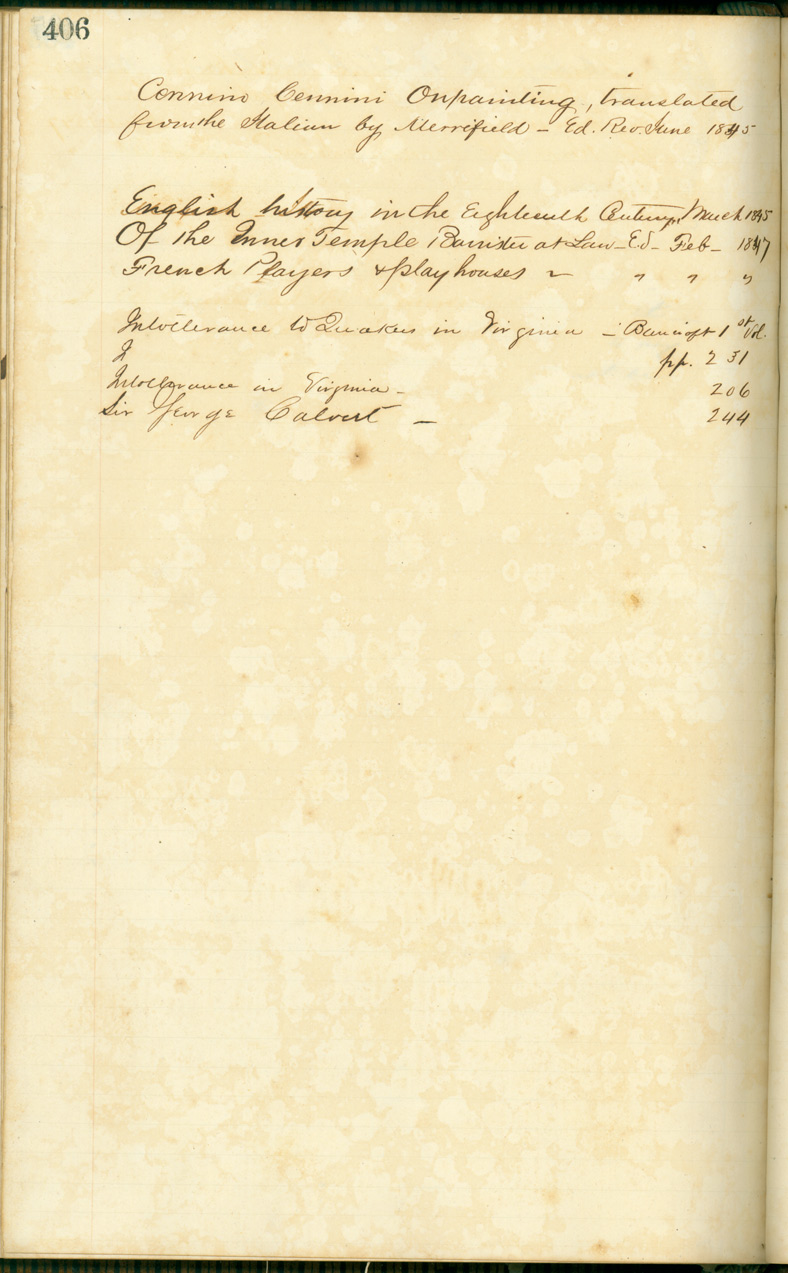 406
Cennino Cennini On painting, translated
from the Italian by Merrifield – Ed. Rev. June 1845
English history in the Eighteenth Century, March 1845
Of the Inner Temple Barrister at Law – Ed – Feb – 1847
French Players & playhouses – " " "
Intollerance to Quakers in Virginia – Bancroft 1st Vol.
pp. 231
Intollerance in Virginia – 206
Sir George Calvert – 244